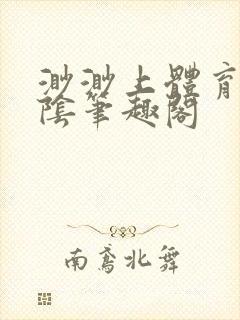 渺渺上體育
陰筆趣閣
南鳶北舞